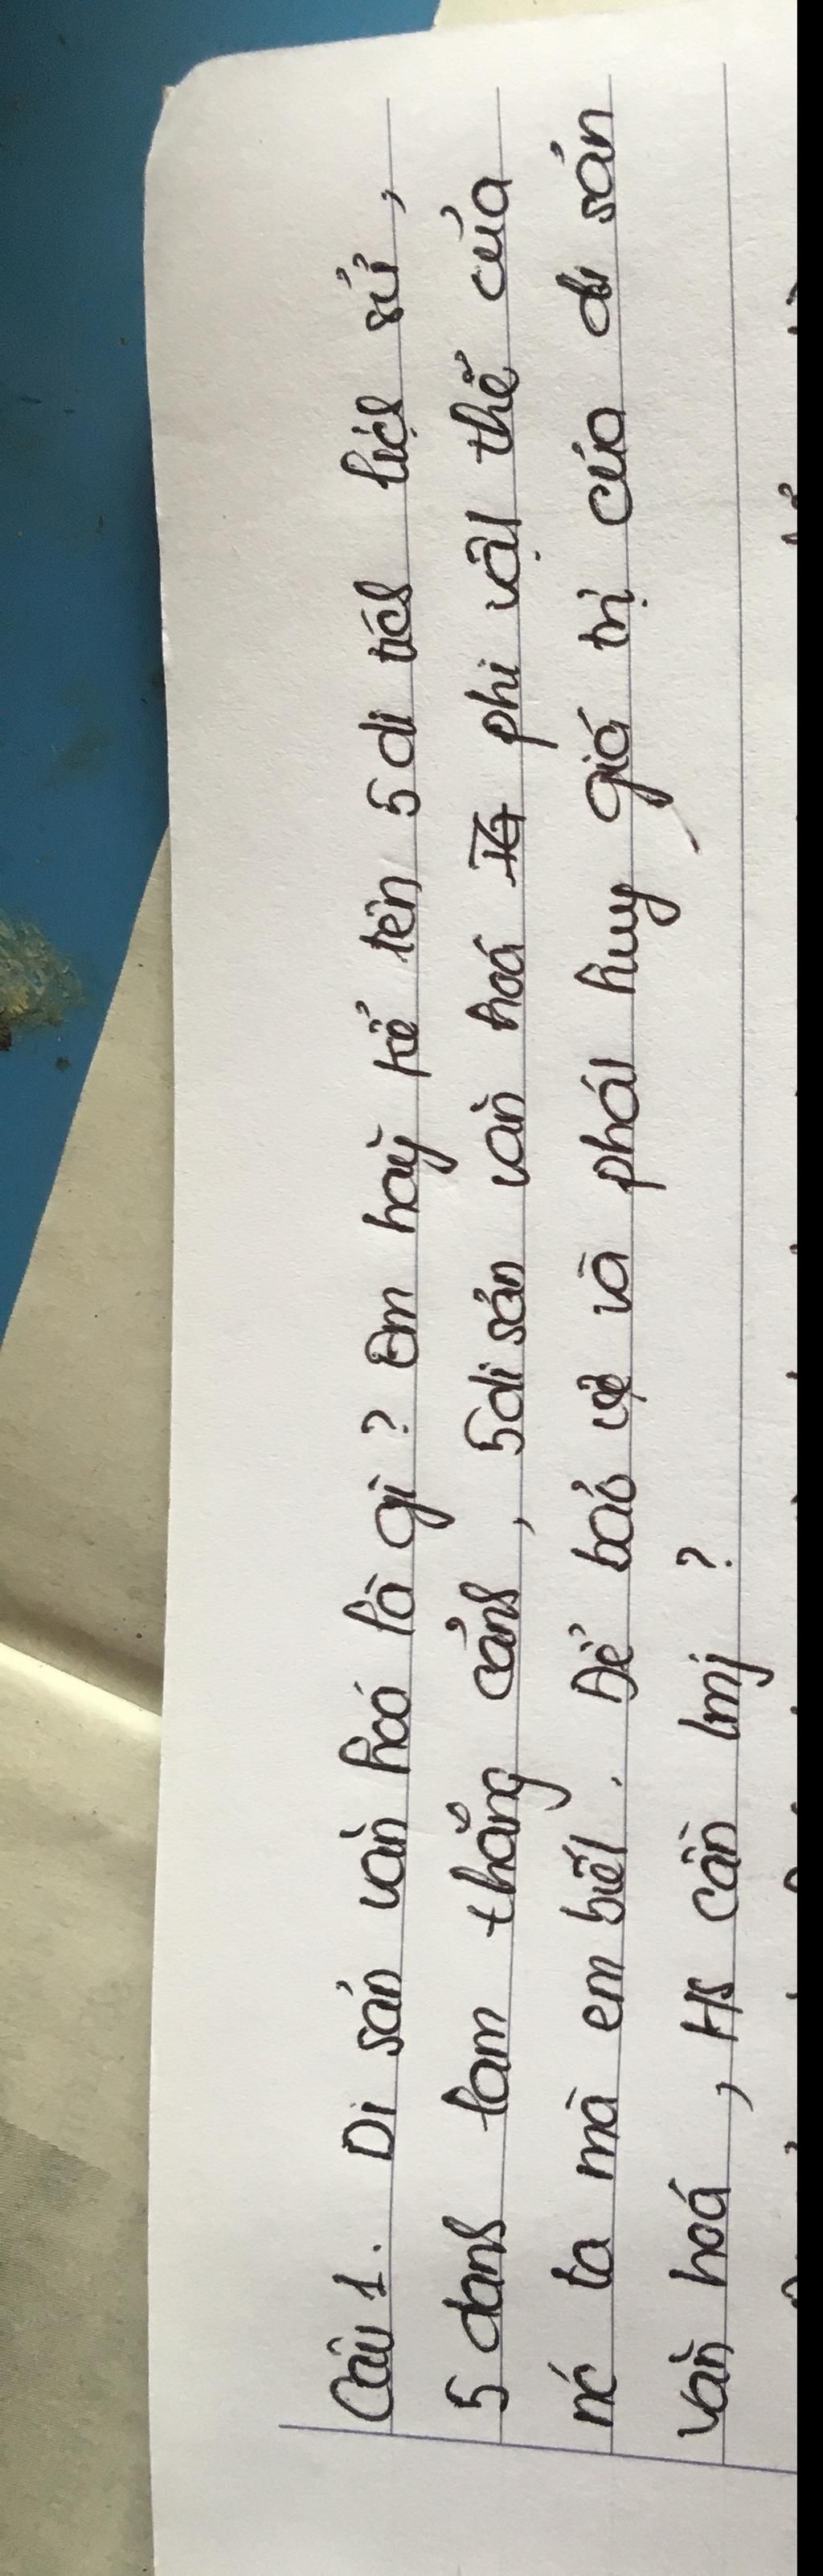 Câu 1. Di sản văn hoá là gì ? Em hãy kể tên 5 di tích lịch sử,
5 danh lam thắng cảnh, 5 di sản văn hoá phi vật thể của
nc ta mà em biết. Để bảo vệ và phát huy giá trị của di sản
văn hoá, HS cần lmj ?